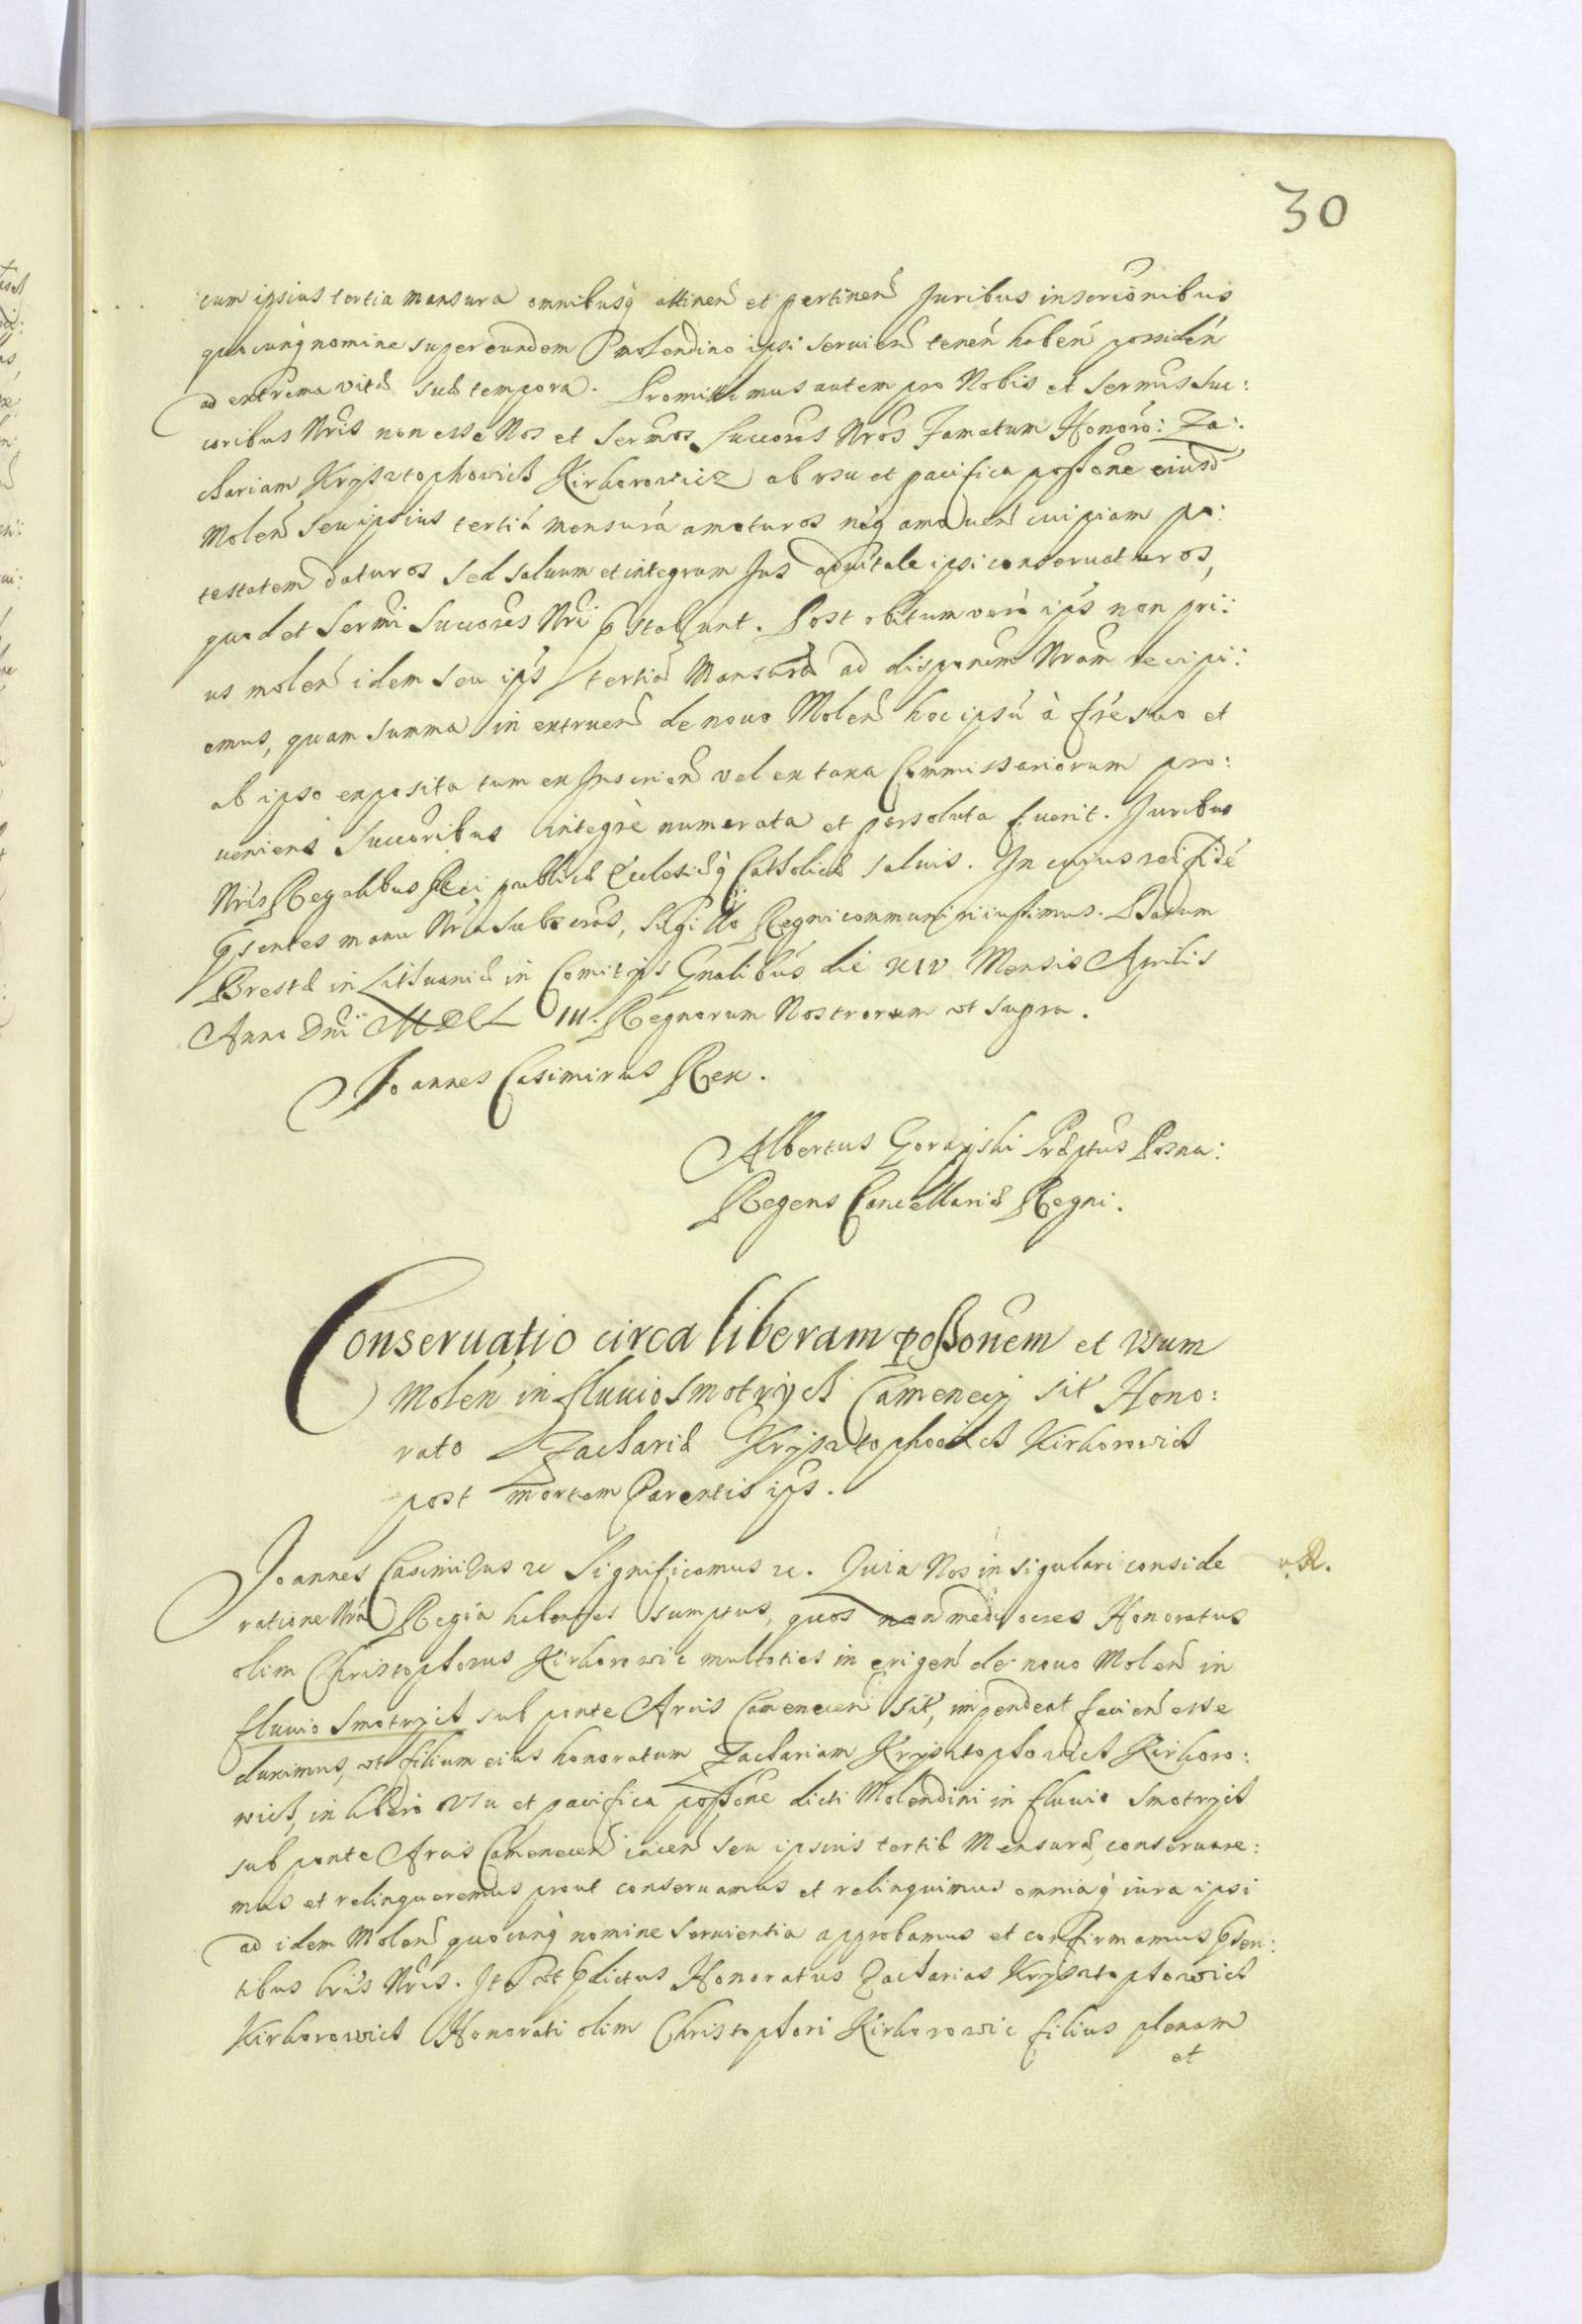 30
cum ipsius tertia mensura omnibusq́ attinen̄ et pertinen̄ Juribus inscrip̄onibus
quocunq́ nomine super eundem Molendino ipsi servien̄ tenen̄ haben̄ possiden̄
ad extrema vitæ suæ tempora. Promittimus autem pro Nobis et Sermis Suc:
coribus Nr̄is non esse Nos et Ser̄mos Succores Nr̄os Famatum Honorō: Za:
chariam Krysztophowich Kirkorowicz ab usu et pacifica possōne eiusd̄
Molen̄ seu ipsius tertiá mensurá amoturos neq́ amoven̄ cuipiam po:
testatem daturos sed salvum et integrum Jus advitale ipsi conservaturos,
quod et Ser̄mi Succores Nr̄i p̄stabunt. Post obitum verò ips̄ non pri:
us molen̄ idem seu ips̄ tertiā Mensurā ad disponem̄ Nram̄ recipi:
emus, quam summa in extruen̄ de novo Molen̄ hoc ipsū à fr̄e suo et
ab ipso exposita tum ex Inscrien̄ vel ex taxa Commissariorum pro:
veniens Succoribus integrè numerata et persoluta fuerit. Juribus
Nr̄is Regalibus Rei publicæ Ecclesiæq́ Catholicæ salvis. In cuius rei fidē
p̄sentes manu Nr̄a subscrās, Sigillo Regni communiri iussimus. Datum
Brestæ in Lithvaniæ in Comitijs Gnalibūs die XIV Mensis Aprilis
Anno Dn̄i MDCL III. Regnorum Nostrorum ut supra.
Joannes Casimirus Rex.
Albertus Gorayski Præptūs Posna:
Regens Cancellariæ Regni.
Conservatio circa liberam possonēm et usum
Molen̄ in fluvio Smotrych Camenecij sit̄ Hono:
rato Zachariæ Krysztophowich Kirkorowich
post mortem Parentis ips̄.
Joannes Casimirus &c Significamus &c. Quia Nos in sigulari conside
ratione Nr̄a Regia habentes sumptus, quos non mediocres Honoratus
olim Christophorus Kirkorowic multoties in erigen̄ de novo Molen̄ in
fluvio Smotrych sub ponte Arcis Camenecen̄ sit̄, impendeat facien̄ esse
duximus, ut filium eius honoratum Zachariam Krysztophowich Kirkoro:
wich, in libero usu et pacifica possōne dicti Molendini in fluvio Smotrych
sub ponte Arcis Camenecen̄ iacen̄ seu ipsius tertiæ Mensuræ, conservare:
mus et relinqueremus prout conservamus et relinquimus omniaq́ iura ipsi
ad idem Molen̄ quocunq̀ nomine servientia approbamus et confirmamus p̄sen:
tibus lr̄is Nr̄is. Ita ut p̄dictus Honoratus Zacharias Krysztophowich
Kirkorowich Honorati olim Christophori Kirkorowic filius plenam
et